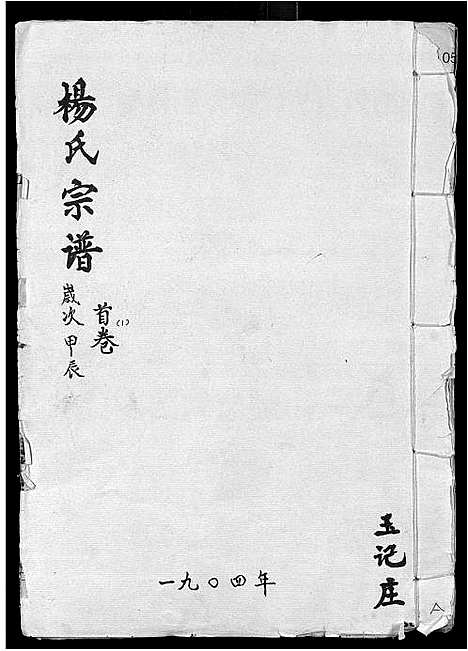 楊氏宗谱
嵗次甲辰
首卷
(1)
玉记庄
一九〇四年
05
A